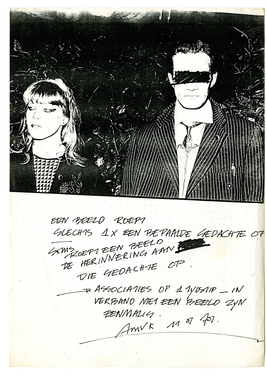 EEN BEELD ROEPT
SLECHTS 1 x EEN BEPAALDE GEDACHTE OP
SOMS ROEPT EEN BEELD
DE HERINNERING AAN
DIE GEDACHTE OP.
→ ASSOCIATIES OP 1 TYDSTIP _ IN
VERBAND MET EEN BEELD ZYN
EENMALIG.
AMVK